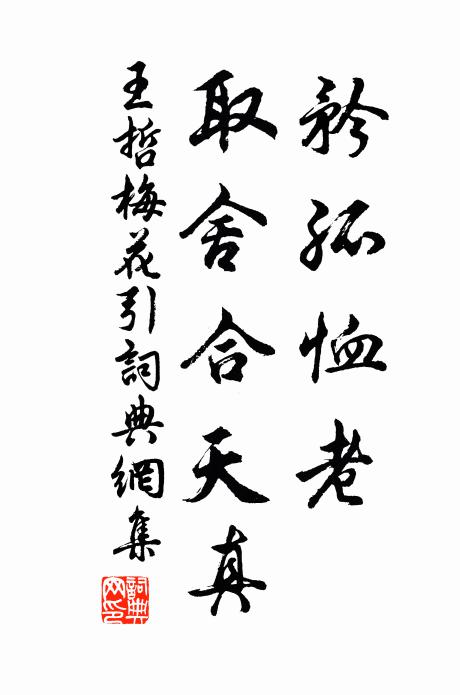 矜孤恤老
取舍合天真
王哲梅花引詞典網集
詞典网印